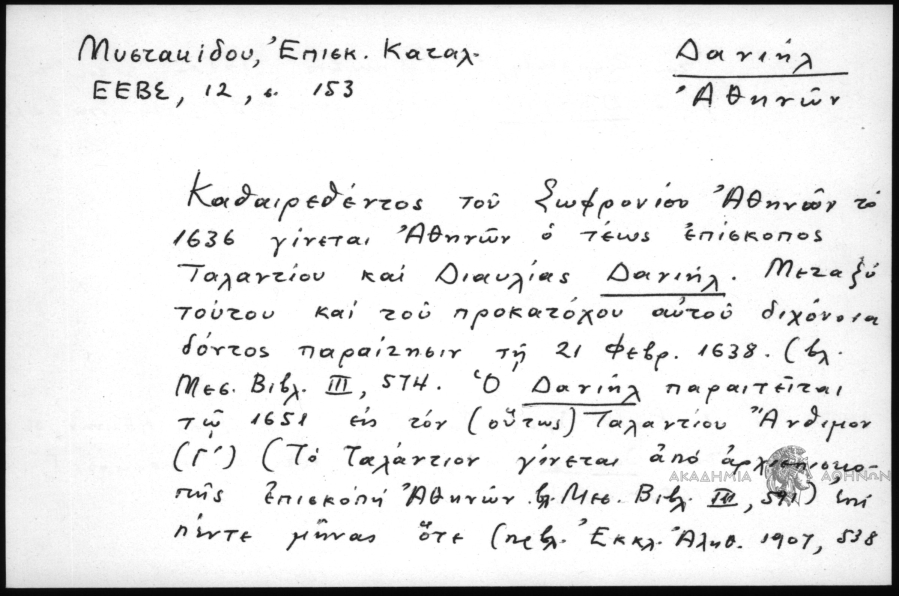 Μυστακίδου, Ἐπισκ. Καταλ.
ΕΕΒΣ, 12, σ. 153
Δανιήλ
Ἀθηνῶν
Καθαιρεθέντος τοῦ Σωφρονίου Ἀθηνῶν τὸ
1636 γίνεται Ἀθηνῶν ὁ τέως ἐπίσκοπος
Ταλαντίου καὶ Διαυλίας Δανιήλ. Μεταξύ
τούτου καὶ τοῦ προκατόχου αὐτοῦ διχόνοια
δόντος παραίτησιν τῇ 21 Φεβρ. 1638. (βλ.
Μεσ. Βιβλ. III, 574. Ὁ Δανιήλ παραιτεῖται
τῷ 1651 εἰς τόν (οὕτως) Ταλαντίου Ἄνθιμον
(Γ΄) (Τὸ Ταλάντιον γίνεται ἀπό ἀρχιεπισκο-
πῆς ἐπισκοπή Ἀθηνῶν βλ. Μεσ. Βιβλ. III, 591) ἐπί
πέντε μῆνας ὅτε (πρβλ. Ἐκκλ. Ἀληθ. 1907, 538
ΑΚΑΔΗΜΙΑ ΑΘΗΝΩΝ